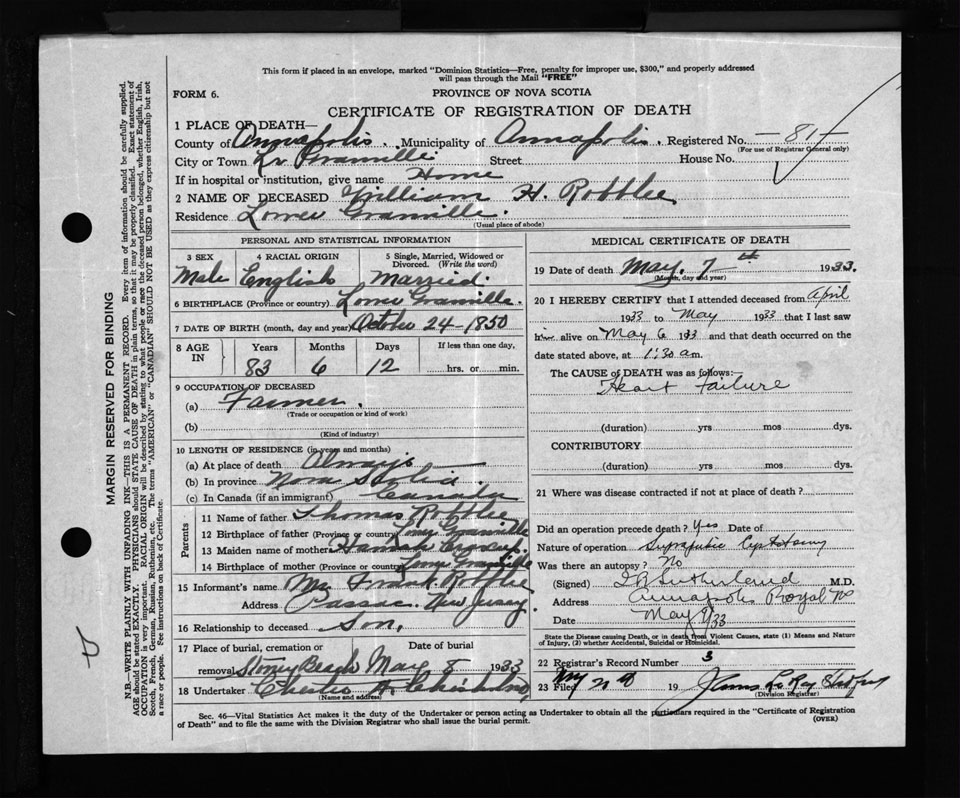 This form if placed in an envelope, marked "Dominion Statistics—Free, penalty for improper use, $300," and properly addressed
will pass through the Mail "FREE"
FORM 6.
PROVINCE OF NOVA SCOTIA
CERTIFICATE OF REGISTRATION OF DEATH
1 PLACE OF DEATH—
County of Annapolis. Municipality of Annapolis. Registered No. —81—
(For use of Registrar General only)
City or Town Lr Granville Street House No.
If in hospital or institution, give name Home
2 NAME OF DECEASED William H. Robblee
Residence Lower Granville.
(Usual place of abode)
PERSONAL AND STATISTICAL INFORMATION
3 SEX 4 RACIAL ORIGIN 5 Single, Married, Widowed or Divorced. (Write the word)
Male English Married.
6 BIRTHPLACE (Province or country) Lower Granville.
7 DATE OF BIRTH (month, day and year) October 24-1850
8 AGE IN Years Months Days If less than one day,
83 6 12 hrs. or min.
9 OCCUPATION OF DECEASED
(a) Farmer.
(Trade or occupation or kind of work)
(b)
(Kind of industry)
10 LENGTH OF RESIDENCE (in years and months)
(a) At place of death Always
(b) In province Nova Scotia
(c) In Canada (if an immigrant) Canada
Parents
11 Name of father Thomas Robblee
12 Birthplace of father (Province or country) Lower Granville
13 Maiden name of mother Hannah
14 Birthplace of mother (Province or country) Lower Granville
15 Informant's name Mr. Frank Robblee
Address Passaic New Jersey.
16 Relationship to deceased Son.
17 Place of burial, cremation or removal Date of burial
Stoney Beach May 8 1933
18 Undertaker Chisholm
(Name and address)
MEDICAL CERTIFICATE OF DEATH
19 Date of death May. 7th 1933.
(Month, day and year)
20 I HEREBY CERTIFY that I attended deceased from April
1933 to May 1933 that I last saw
him alive on May 6 1933 and that death occurred on the
date stated above, at 1:30 am.
The CAUSE OF DEATH was as follows:
Heart Failure
(duration) yrs mos dys.
CONTRIBUTORY
(duration) yrs mos dys.
21 Where was disease contracted if not at place of death?
Did an operation precede death? Yes Date of
Nature of operation Suprapubic Cystotomy
Was there an autopsy? No
(Signed) Sutherland M.D.
Address Annapolis Royal NS
Date May 9/33
State the Disease causing Death, or in death from Violent Causes, state (1) Means and Nature
of Injury, (2) whether Accidental, Suicidal or Homicidal.
22 Registrar's Record Number 3
23 Filed 19 James LeRoy
(Division Registrar)
Sec. 46—Vital Statistics Act makes it the duty of the Undertaker or person acting as Undertaker to obtain all the particulars required in the "Certificate of Registration
of Death" and to file the same with the Division Registrar who shall issue the burial permit.
(OVER)
MARGIN RESERVED FOR BINDING
N.B.—WRITE PLAINLY WITH UNFADING INK—THIS IS A PERMANENT RECORD. Every item of information should be carefully supplied.
AGE should be stated EXACTLY. PHYSICIANS should STATE CAUSE OF DEATH in plain terms, so that it may be properly classified. Exact statement of
OCCUPATION is very important. RACIAL ORIGIN will be described by stating to what people or race the deceased person belonged, whether English, Irish,
Scotch, French, German, Russian, Ruthenian, etc. The terms "AMERICAN" or "CANADIAN" SHOULD NOT BE USED as they express citizenship but not
a race or people. See instructions on back of Certificate.